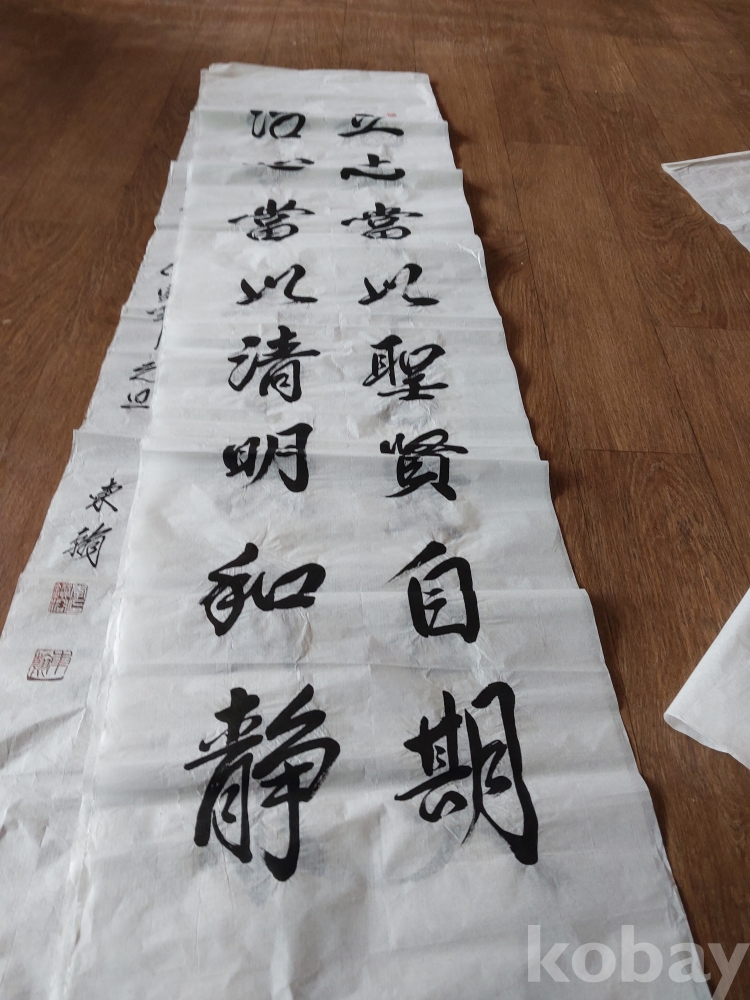 立志當以聖賢自期
治心當以清明和静
東翰
kobay